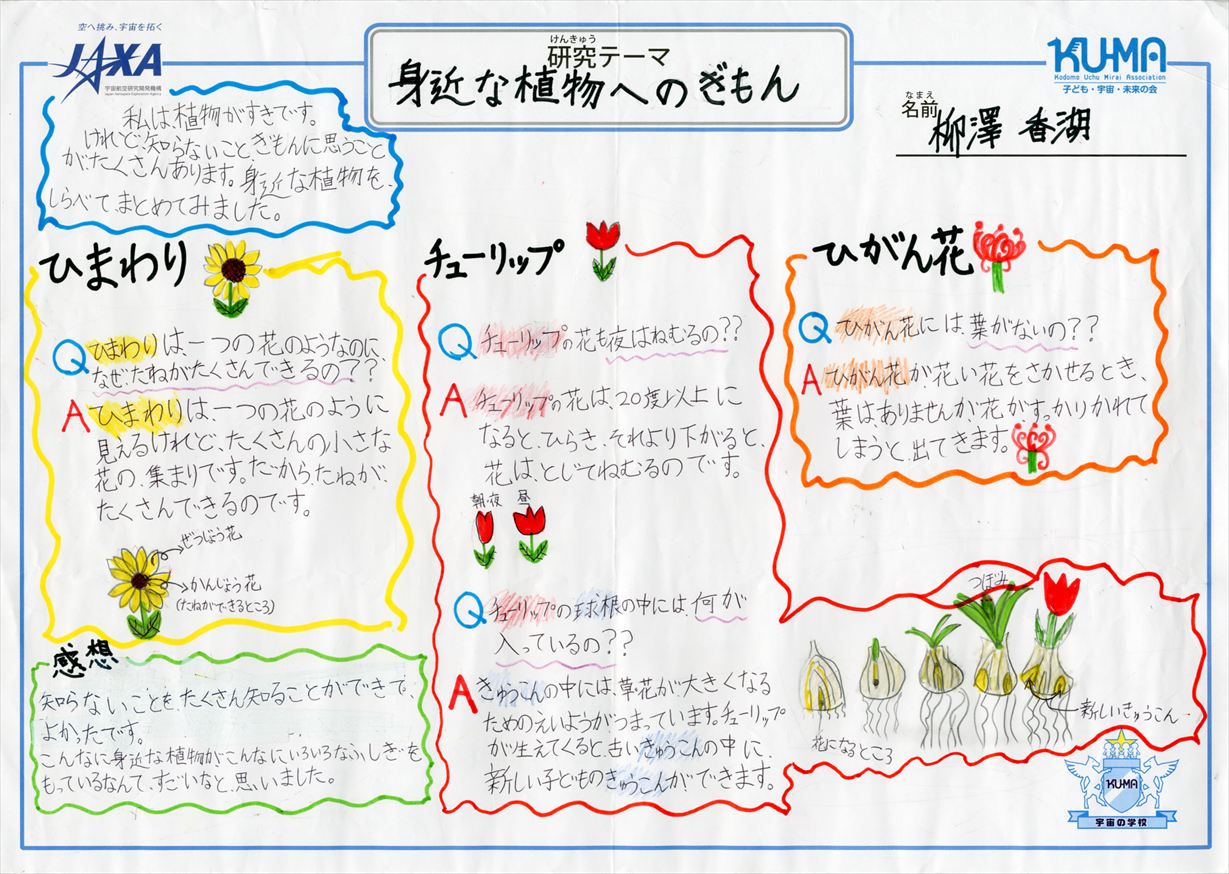 空へ挑み、宇宙を拓く
JAXA
宇宙航空研究開発機構
Japan Aerospace Exploration Agency
けんきゅう
研究テーマ
身近な植物へのぎもん
KU-MA
Kodomo Uchu Mirai Association
子ども・宇宙・未来の会
なまえ
名前
柳澤 香湖
私は、植物がすきです。
けれど、知らないこと、ぎもんに思うこと
が、たくさんあります。身近な植物を、
しらべて、まとめてみました。
ひまわり
Q ひまわりは、一つの花のようなのに、
なぜ、たねがたくさんできるの??
A ひまわりは、一つの花のように
見えるけれど、たくさんの小さな
花の、集まりです。だから、たねが、
たくさんできるのです。
ぜつじょう花
かんじょう花
(たねができるところ)
感想
知らないことを、たくさん知ることができて、
よかったです。
こんなに身近な植物が、こんなにいろいろなふしぎを
もっているなんて、すごいなと、思いました。
チューリップ
Q チューリップの花も夜はねむるの??
A チューリップの花は、20度以上に
なると、ひらき、それより下がると、
花は、とじてねむるのです。
朝・夜 昼
Q チューリップの球根の中には、何が
入っているの??
A きゅうこんの中には、草花が大きくなる
ためのえいようがつまっています。チューリップ
が生えてくると、古いきゅうこんの中に
新しい子どものきゅうこんができます。
ひがん花
Q ひがん花には、葉がないの??
A ひがん花が花い花をさかせるとき、
葉は、ありませんが、花がすっかりかれて
しまうと、出てきます。
つぼみ
新しいきゅうこん
花になるところ
KU-MA
宇宙の学校